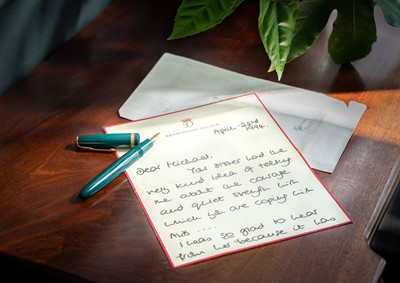 KENSINGTON PALACE
April. 22nd
1994.
Dear Michael,
Your sister had the
very kind idea of telling
me about the courage
and quiet strength with
which you are coping with
Aids ....
I was so glad to hear
from her because it has